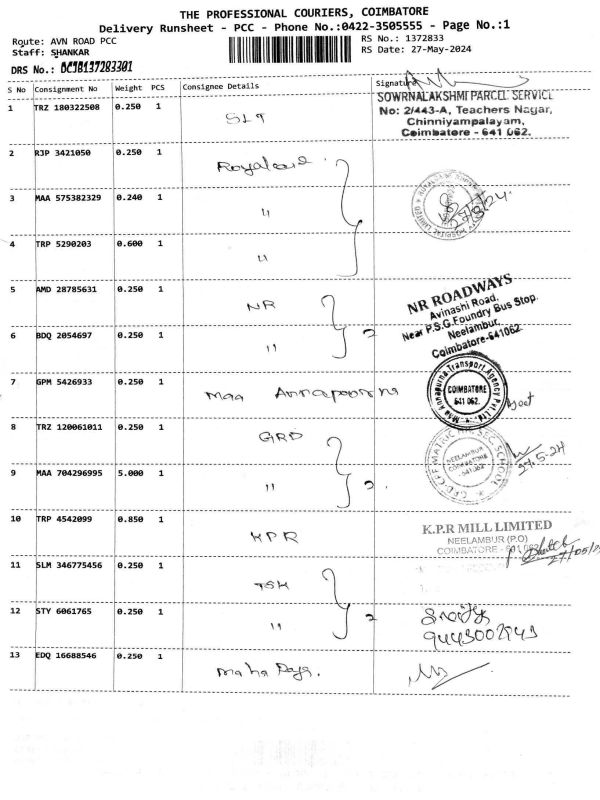 THE PROFESSIONAL COURIERS, COIMBATORE
Delivery Runsheet - PCC - Phone No.:0422-3505555 - Page No.:1
Route: AVN ROAD PCC
RS No.: 1372833
Staff: SHANKAR
RS Date: 27-May-2024
DRS No.: DCJB137283301
S No Consignment No Weight PCS Consignee Details Signature
SOWRNALAKSHMI PARCEL SERVICE
1 TRZ 180322508 0.250 1
No: 2/443-A, Teachers Nagar,
Chinniyampalayam,
Coimbatore - 641 062.
2 RJP 3421050 0.250 1
3 MAA 575382329 0.240 1 "
4 TRP 5290203 0.600 1 "
5 AMD 28785631 0.250 1 NR
NR ROADWAYS
Avinashi Road,
Near P.S.G.Foundry Bus Stop.
Neelambur,
Coimbatore-641062
6 BDQ 2054697 0.250 1 " 2
7 GPM 5426933 0.250 1 Maa Annapoorna
Maa Annapurna Transport Agency Pvt.Ltd.
COIMBATORE
641 062.
8 TRZ 120061011 0.250 1 GRD
NEELAMBUR
COIMBATORE
641 062
27.5.24
9 MAA 704296995 5.000 1 " 2
10 TRP 4542099 0.850 1 KPR
K.P.R MILL LIMITED
NEELAMBUR (P.O)
COIMBATORE - 641 062
11 SLM 346775456 0.250 1 TSK
12 STY 6061765 0.250 1 " 2
13 EDQ 16688546 0.250 1 Maha Raja.